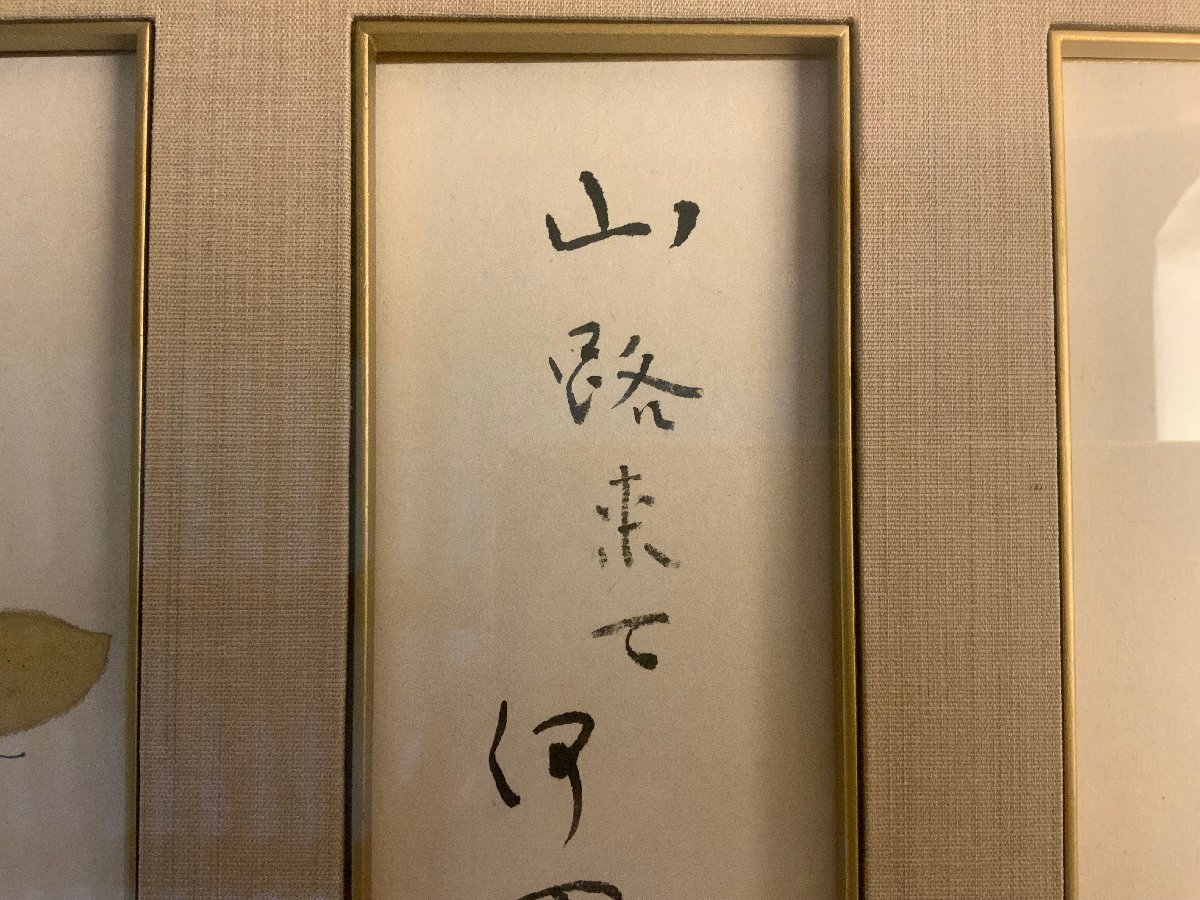 山路来て
何